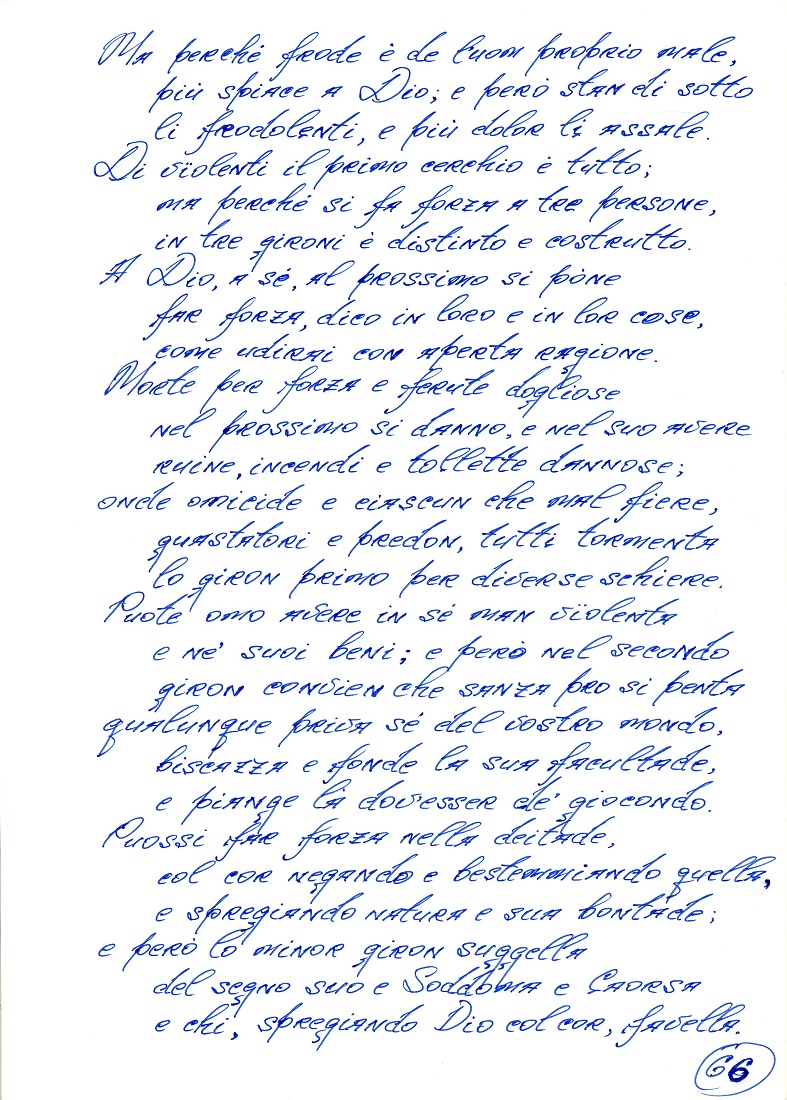 Ma perché frode è de l'uom proprio male,
più spiace a Dio; e però stan di sotto
li frodolenti, e più dolor li assale.
Di vïolenti il primo cerchio è tutto;
ma perché si fa forza a tre persone,
in tre gironi è distinto e costrutto.
A Dio, a sé, al prossimo si pòne
far forza, dico in loro e in lor cose,
come udirai con aperta ragione.
Morte per forza e ferute dogliose
nel prossimo si danno, e nel suo avere
ruine, incendi e tollette dannose;
onde omicide e ciascun che mal fiere,
guastatori e predon, tutti tormenta
lo giron primo per diverse schiere.
Puote omo avere in sé man vïolenta
e ne' suoi beni; e però nel secondo
giron convien che sanza pro si penta
qualunque priva sé del vostro mondo,
biscazza e fonde la sua facultade,
e piange là dov'esser de' giocondo.
Puossi far forza nella deitade,
col cor negando e bestemmiando quella,
e spregiando natura e sua bontade;
e però lo minor giron suggella
del segno suo e Soddoma e Caorsa
e chi, spregiando Dio col cor, favella.
66